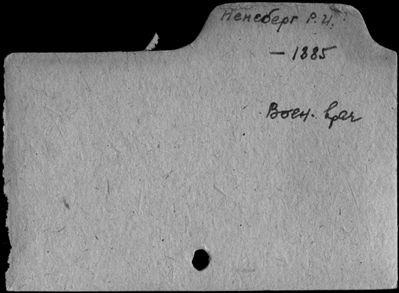 Пенсберг Р. И.
— 1885
Воен. врач